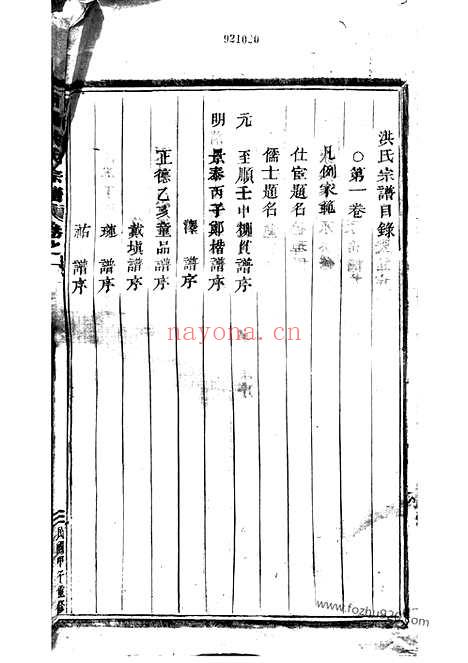 921020
洪氏宗譜目錄
○第一卷
凡例家範
仕宦題名
儒士題名
元 至順壬申 貫譜序
明 景泰丙子鄭楷譜序
澤譜序
正德乙亥童品譜序
戴塡譜序
璉譜序
祐譜序
宗譜 卷之一
民國甲子重修
nayona.cn
www.fozhu920.com